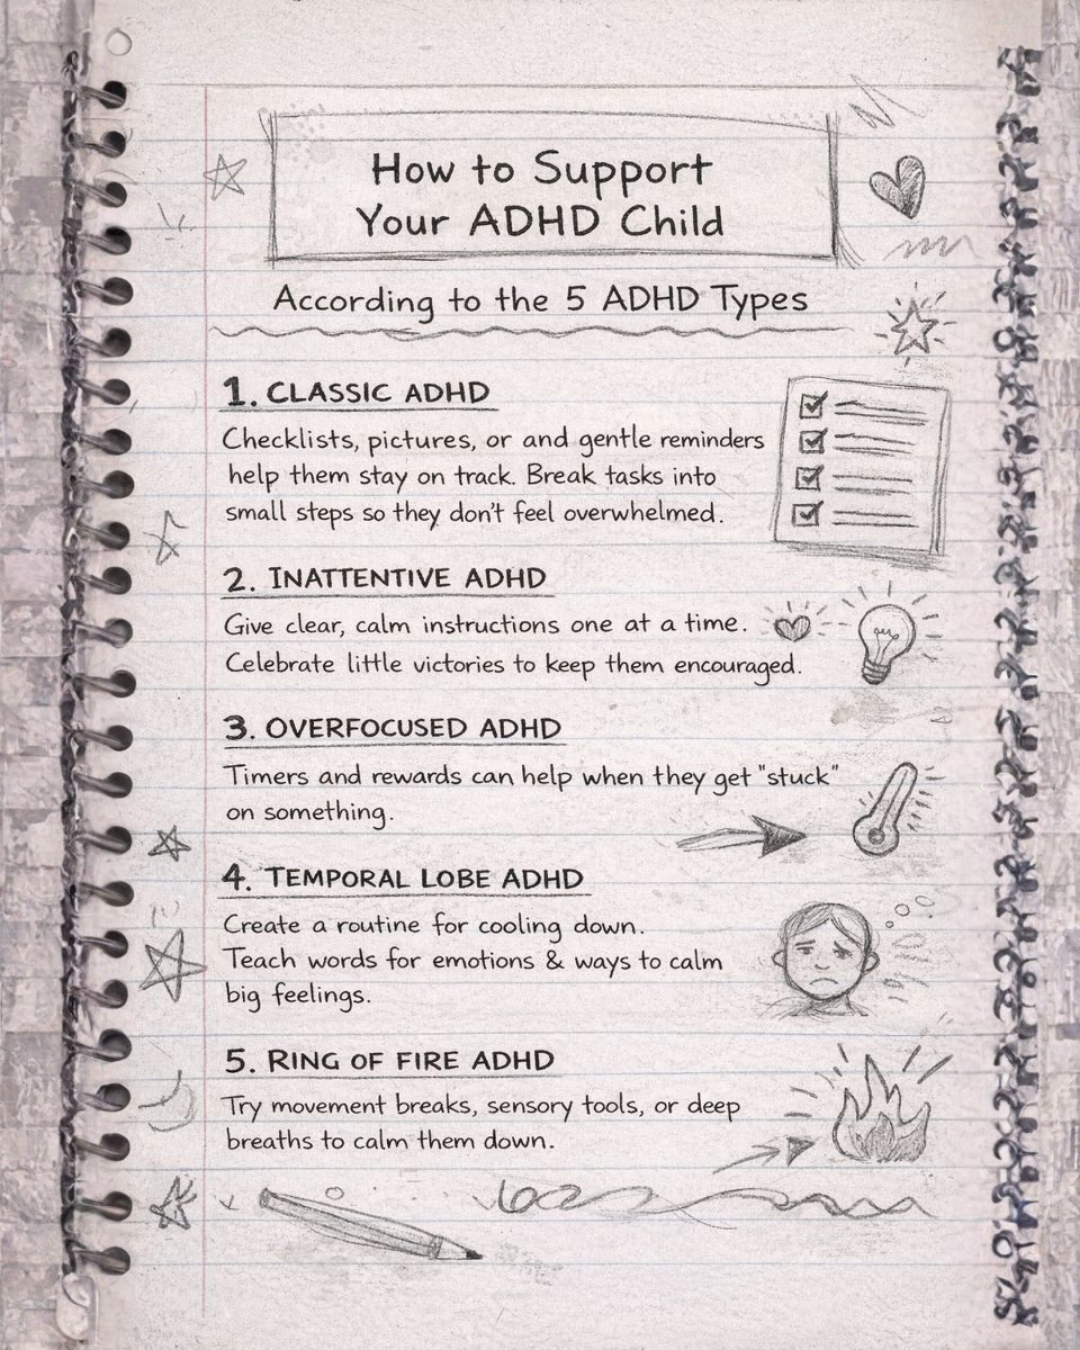 How to Support
Your ADHD Child
According to the 5 ADHD Types
1. CLASSIC ADHD
Checklists, pictures, or and gentle reminders
help them stay on track. Break tasks into
small steps so they don't feel overwhelmed.
2. INATTENTIVE ADHD
Give clear, calm instructions one at a time.
Celebrate little victories to keep them encouraged.
3. OVERFOCUSED ADHD
Timers and rewards can help when they get "stuck"
on something.
4. TEMPORAL LOBE ADHD
Create a routine for cooling down.
Teach words for emotions & ways to calm
big feelings.
5. RING OF FIRE ADHD
Try movement breaks, sensory tools, or deep
breaths to calm them down.